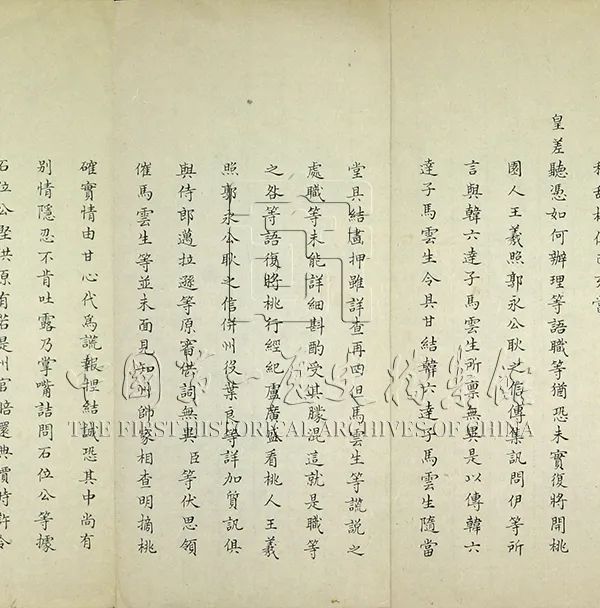 皇差聽憑如何辦理等語職等猶恐未實復將開桃
園人王羲照郭永公耿之信傳集訊問伊等所
言與韓六達子馬雲生所禀無異是以傳韓六
達子馬雲生令具甘結韓六達子馬雲生隨當
堂具結畫押雖詳查再四但馬雲生等謊説之
處職等未能詳細斟酌受其朦混這就是職等
之咎等語復將桃行經紀盧廣盛看桃人王羲
照郭永公耿之信併州役葉良等詳加質訊俱
與侍郎邁拉遜等原審供詞無異臣等伏思領
催馬雲生等並未面見知州帥家相查明摘桃
確實情由甘心代為謊報捏結誠恐其中尚有
別情隱忍不肯吐露乃掌嘴詰問石位公等據
石位公堅供原有若是州官賠還典價時許令
中國第一歷史檔案館
THE FIRST HISTORICAL ARCHIVES OF CHINA